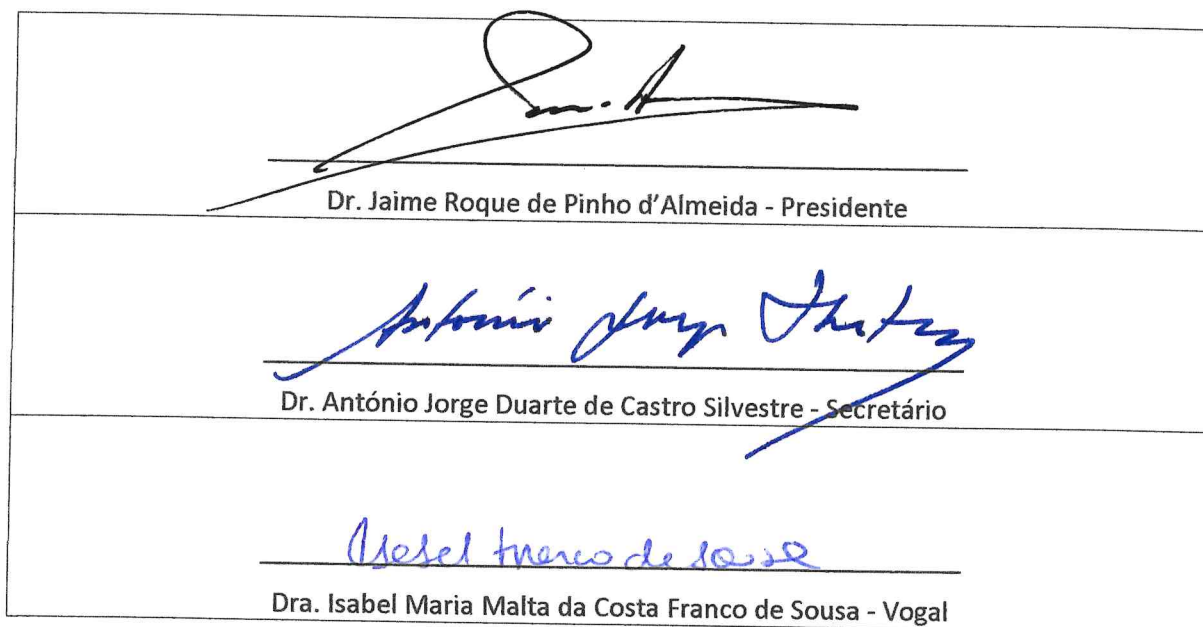 Dr. Jaime Roque de Pinho d'Almeida - Presidente
António Jorge
Dr. António Jorge Duarte de Castro Silvestre - Secretário
Isabel Franco de Sousa
Dra. Isabel Maria Malta da Costa Franco de Sousa - Vogal